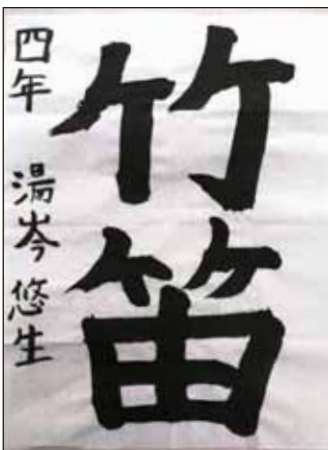 竹笛
四年 湯岑 悠生